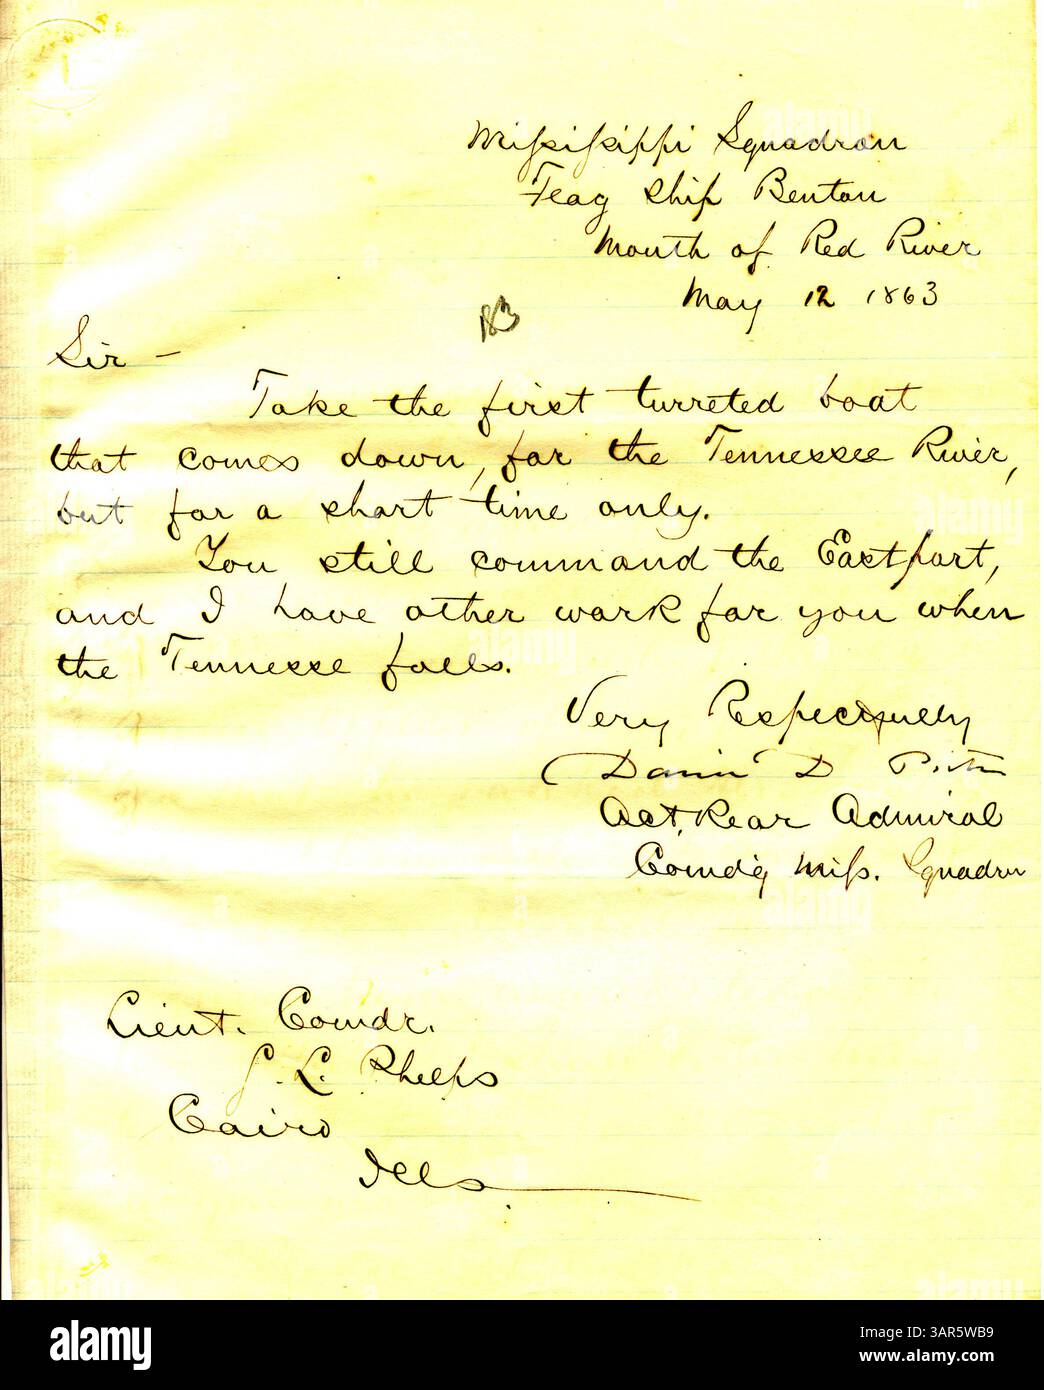 Mississippi Squadron
Flag Ship Benton
Mouth of Red River
May 12 1863
183
Sir -
Take the first turreted boat
that comes down, for the Tennessee River,
but for a short time only.
You still command the Eastport,
and I have other work for you when
the Tennesse falls.
Very Respectfully
David D Porter
Act. Rear Admiral
Comdg Miss. Squadron
Lieut. Comdr.
S. L. Phelps
Cairo
Ills
alamy
Image ID: 3AR5WB9
www.alamy.com